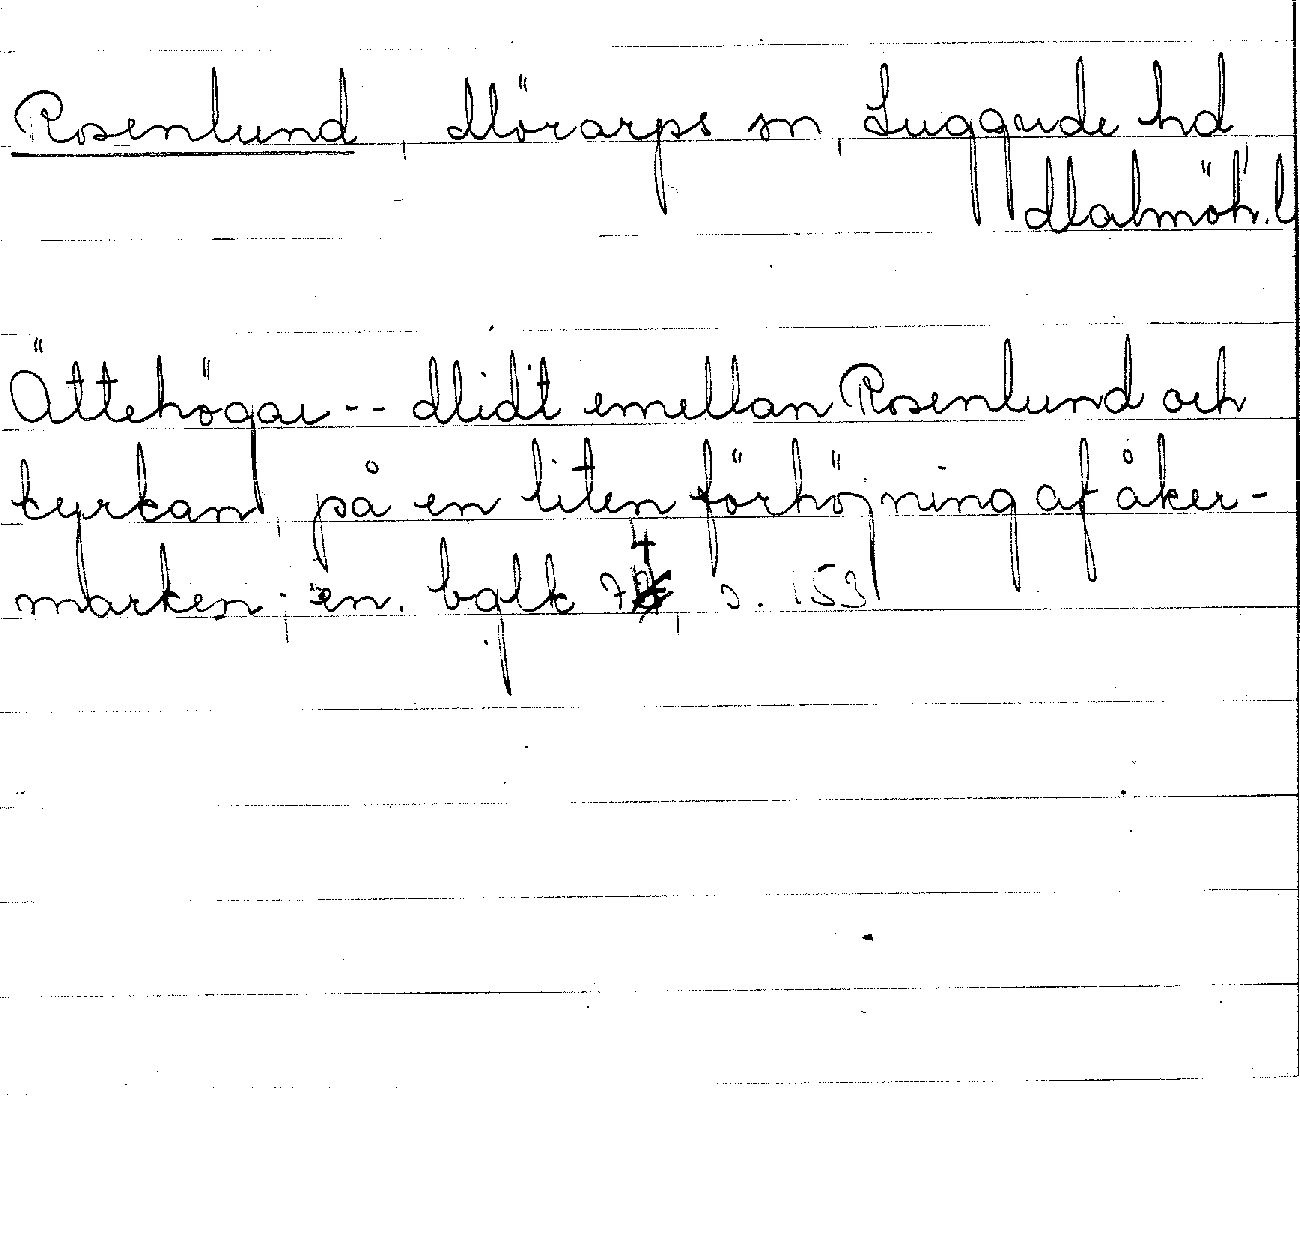 Rosenlund, Mörarps sn, Luggude hd,
Malmöh. l
Ättehögar -- Midt emellan Rosenlund och
kyrkan, på en liten förhöjning af åker-
marken; en. s. 153